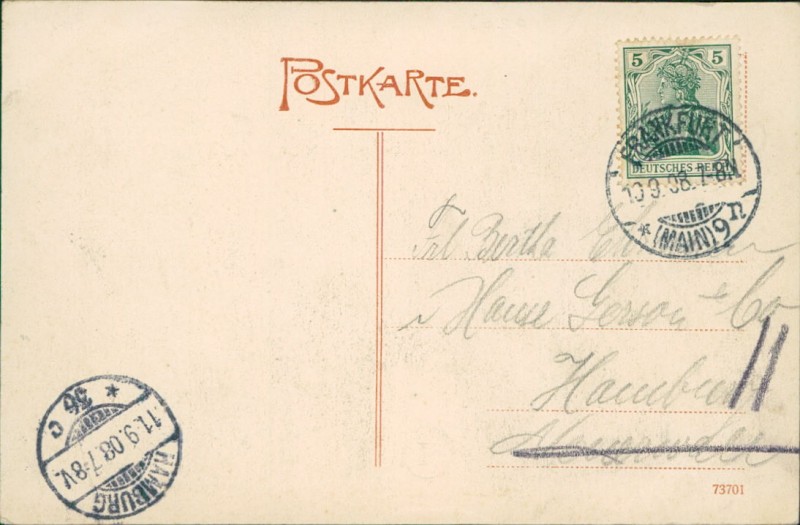 POSTKARTE.
5 5
DEUTSCHES REICH
FRANKFURT
10.9.08.7-8N
* (MAIN) 9 n
Frl Bertha
Hause Gerson & Co
Hamburg
11
* 36 c
11.9.08.7-8V.
HAMBURG
73701